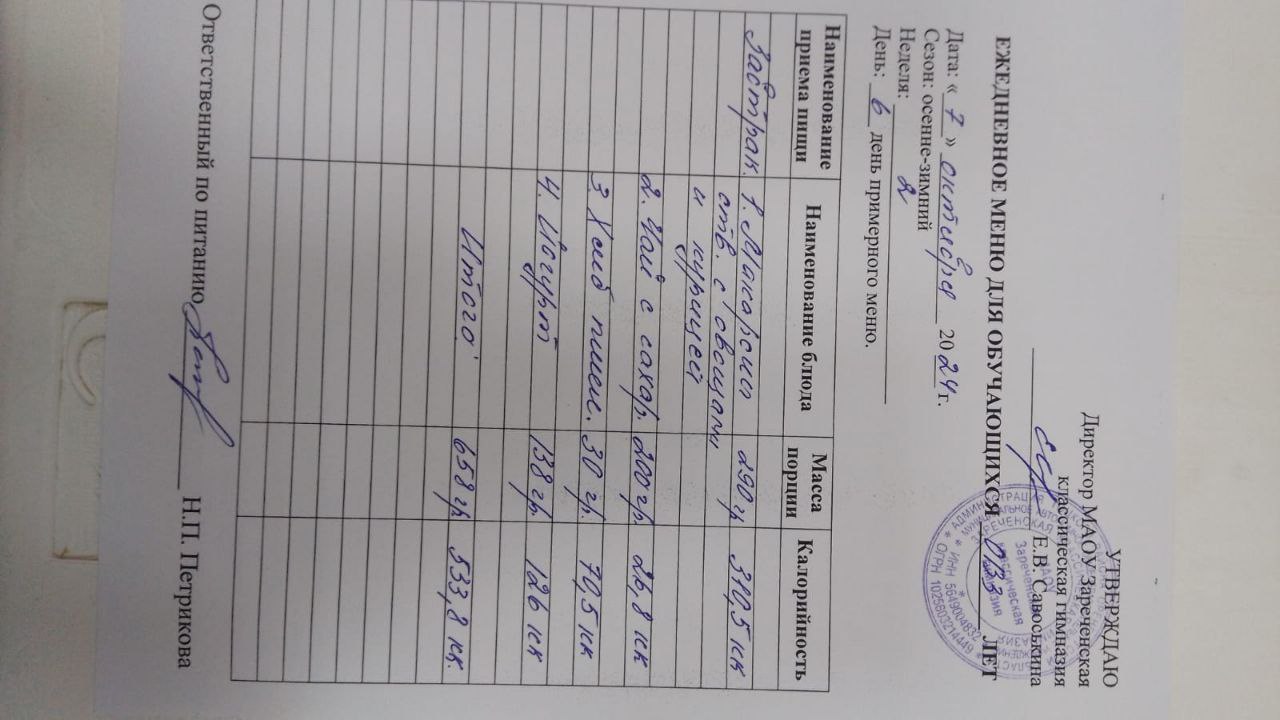 УТВЕРЖДАЮ
Директор МАОУ Зареченская
классическая гимназия
Е.В. Савоськина
ЕЖЕДНЕВНОЕ МЕНЮ ДЛЯ ОБУЧАЮЩИХСЯ ОВЗ ЛЕТ
Дата: « 7 » октября 2024 г.
Сезон: осенне-зимний
Неделя: 2
День: 6 день примерного меню.
Наименование приема пищи Наименование блюда Масса порции Калорийность
Завтрак. 1. Макароны 290 гр 310,5 кк
отв. с овощами
и курицей
2. Чай с сахар. 200 гр 26,8 кк
3. Хлеб пшен. 30 гр. 70,5 кк
4. Йогурт 138 гр 126 кк
Итого: 658 гр. 533,8 кк.
Ответственный по питанию Н.П. Петрикова
ИНН 5649004832
ОГРН 1025603214449